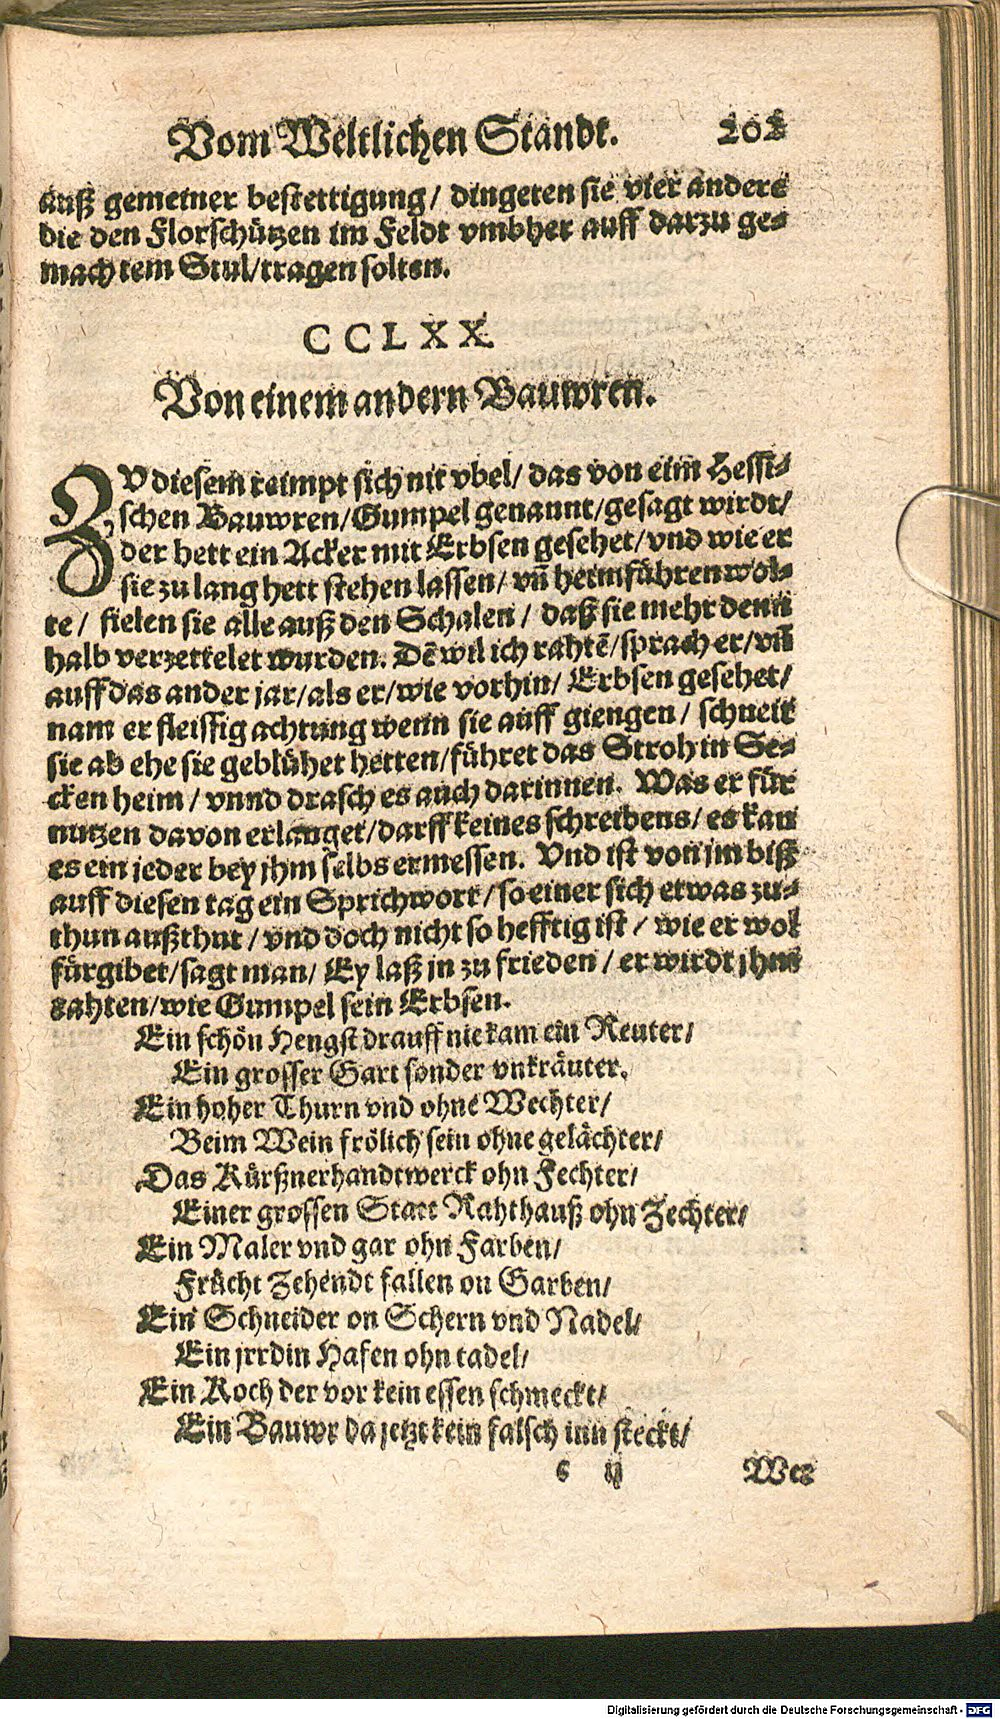 Vom Weltlichen Standt. 202
auß gemeiner bestettigung/ dingeten sie vier andere
die den Florschützen im Feldt vmbher auff darzu ge-
machtem Stul/tragen solten.
CCLXX.
Von einem andern Bauwren.
ZV diesem reimpt sich nit vbel/ das von eim Hessi-
schen Bauwren/Gumpel genannt/gesagt wirdt/
der hett ein Acker mit Erbsen gesehet/vnd wie er
sie zu lang hett stehen lassen/ vñ heimführen wol-
te/ fielen sie alle auß den Schalen/ daß sie mehr denn
halb verzettelet wurden. Dẽ wil ich rahtẽ/sprach er/vñ
auff das ander jar/als er/wie vorhin/ Erbsen gesehet/
nam er fleissig achtung wenn sie auff giengen/ schneit
sie ab ehe sie geblühet hetten/führet das Stroh in Se-
cken heim/ vnnd drasch es auch darinnen. Was er für
nutzen davon erlanget/darff keines schreibens/ es kan
es ein jeder bey jhm selbs ermessen. Vnd ist von jm biß
auff diesen tag ein Sprichwort/so einer sich etwas zu-
thun außthut/vnd doch nicht so hefftig ist/ wie er wol
fürgibet/sagt man/ Ey laß jn zu frieden/er wirdt jhm
rahten/wie Gumpel sein Erbsen.
Ein schön Hengst drauff nie kam ein Reuter/
Ein grosser Gart sonder vnkräuter.
Ein hoher Thurn vnd ohne Wechter/
Beim Wein frölich sein ohne gelächter/
Das Kürßnerhandtwerck ohn Fechter/
Einer grossen Statt Rahthauß ohn Zechter/
Ein Maler vnd gar ohn Farben/
Frücht Zehendt fallen on Garben/
Ein Schneider on Schern vnd Nadel/
Ein jrrdin Hafen ohn tadel/
Ein Koch der vor kein essen schmeckt/
Ein Bauwr da jetzt kein falsch inn steckt/
c ij Wer
Digitalisierung gefördert durch die Deutsche Forschungsgemeinschaft - DFG